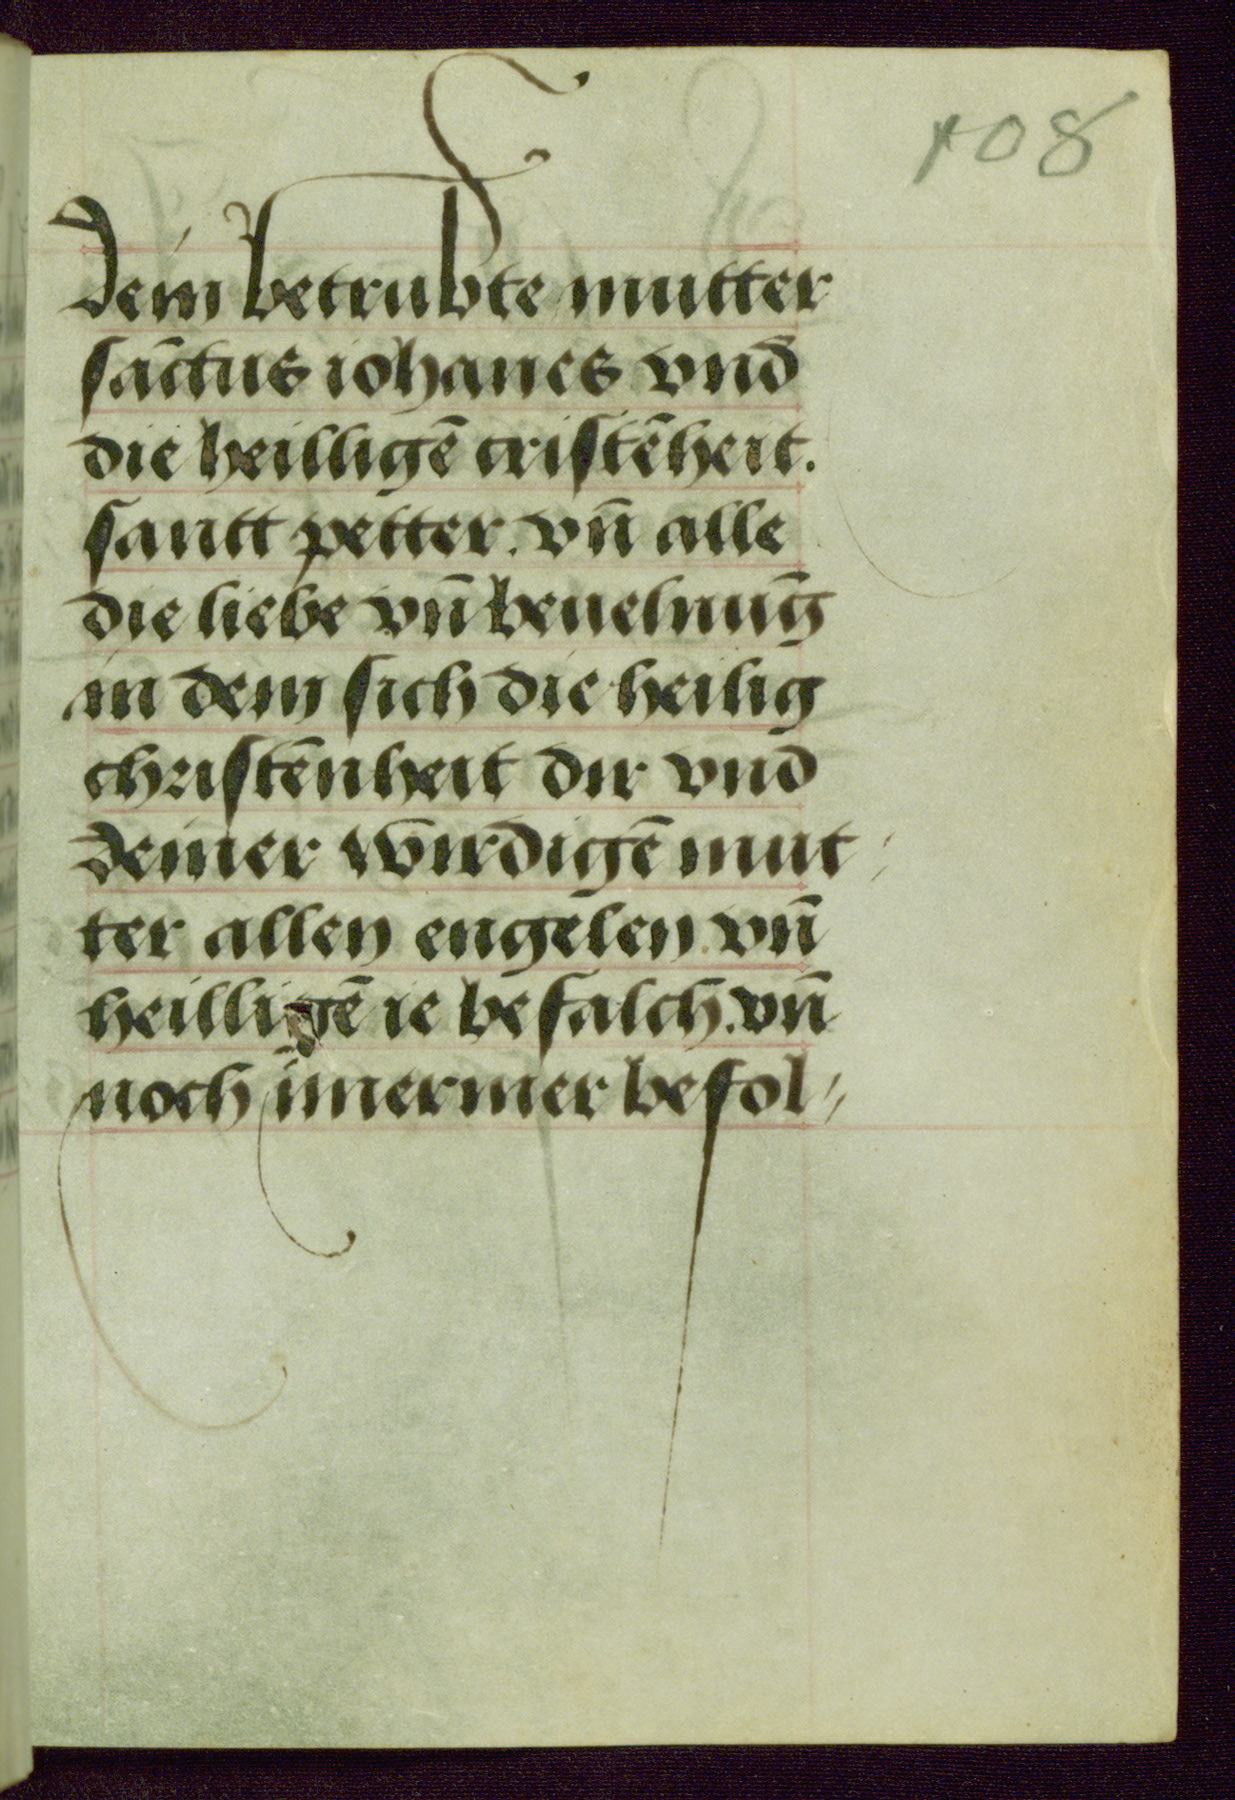 108
dein betrubte mutter
sāctus iohanes vnd
die heilligē cristēheit.
santt petter. vn̄ alle
die liebe vn̄ beuelnūg
in dem sich die heilig
christēnheit dir vnd
deiner wirdigē mut
ter allen engelen vn̄
heilligē ie befalch. vn̄
noch im̄ermer befol⸗